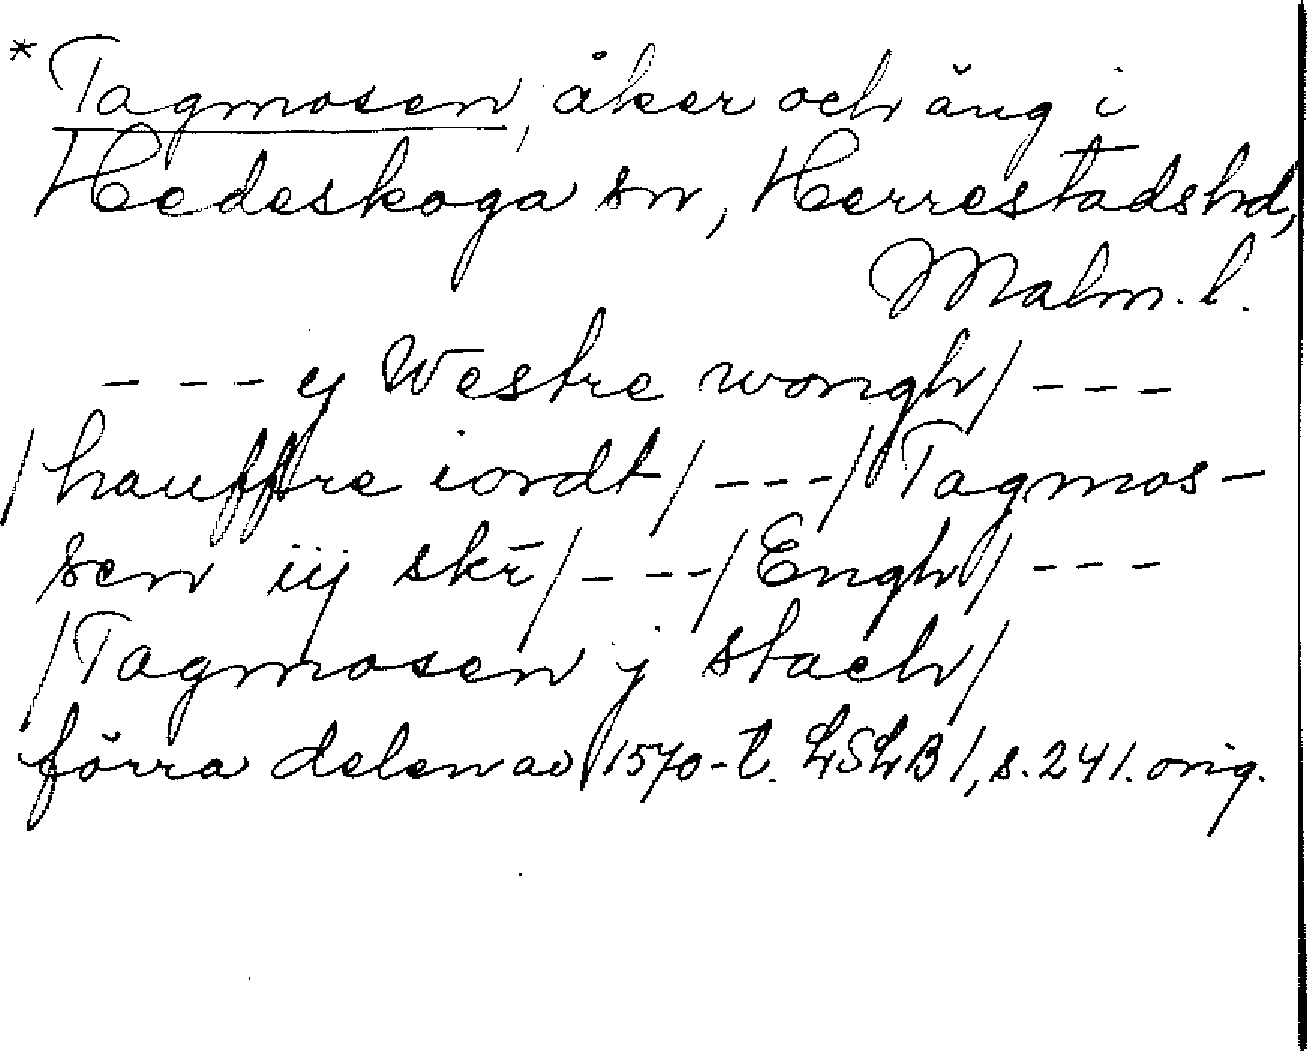 * Tagmosen, åker och äng i
Hedeskoga sn, Herrestads hd,
Malm. l.
--- ij Westre wongh/ ---
/hauffre iordt/ ---/ Tagmos-
sen iij skr̄/ ---/ Engh/ ---
/Tagmosen j stach/
förra delen av 1570-t. LSLB 1, s. 241. orig.